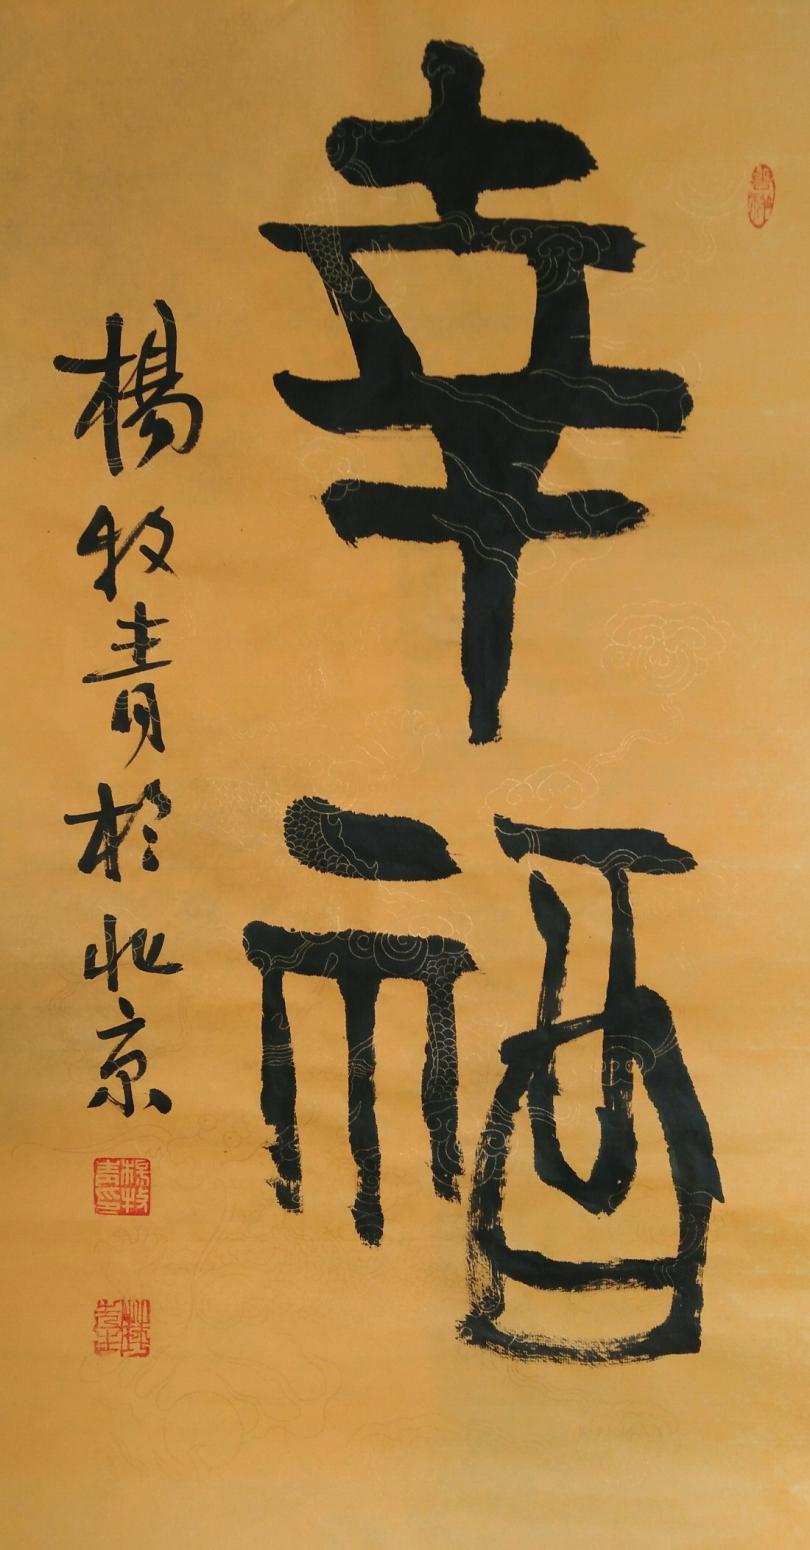 幸福
楊牧青於北京
楊牧青印